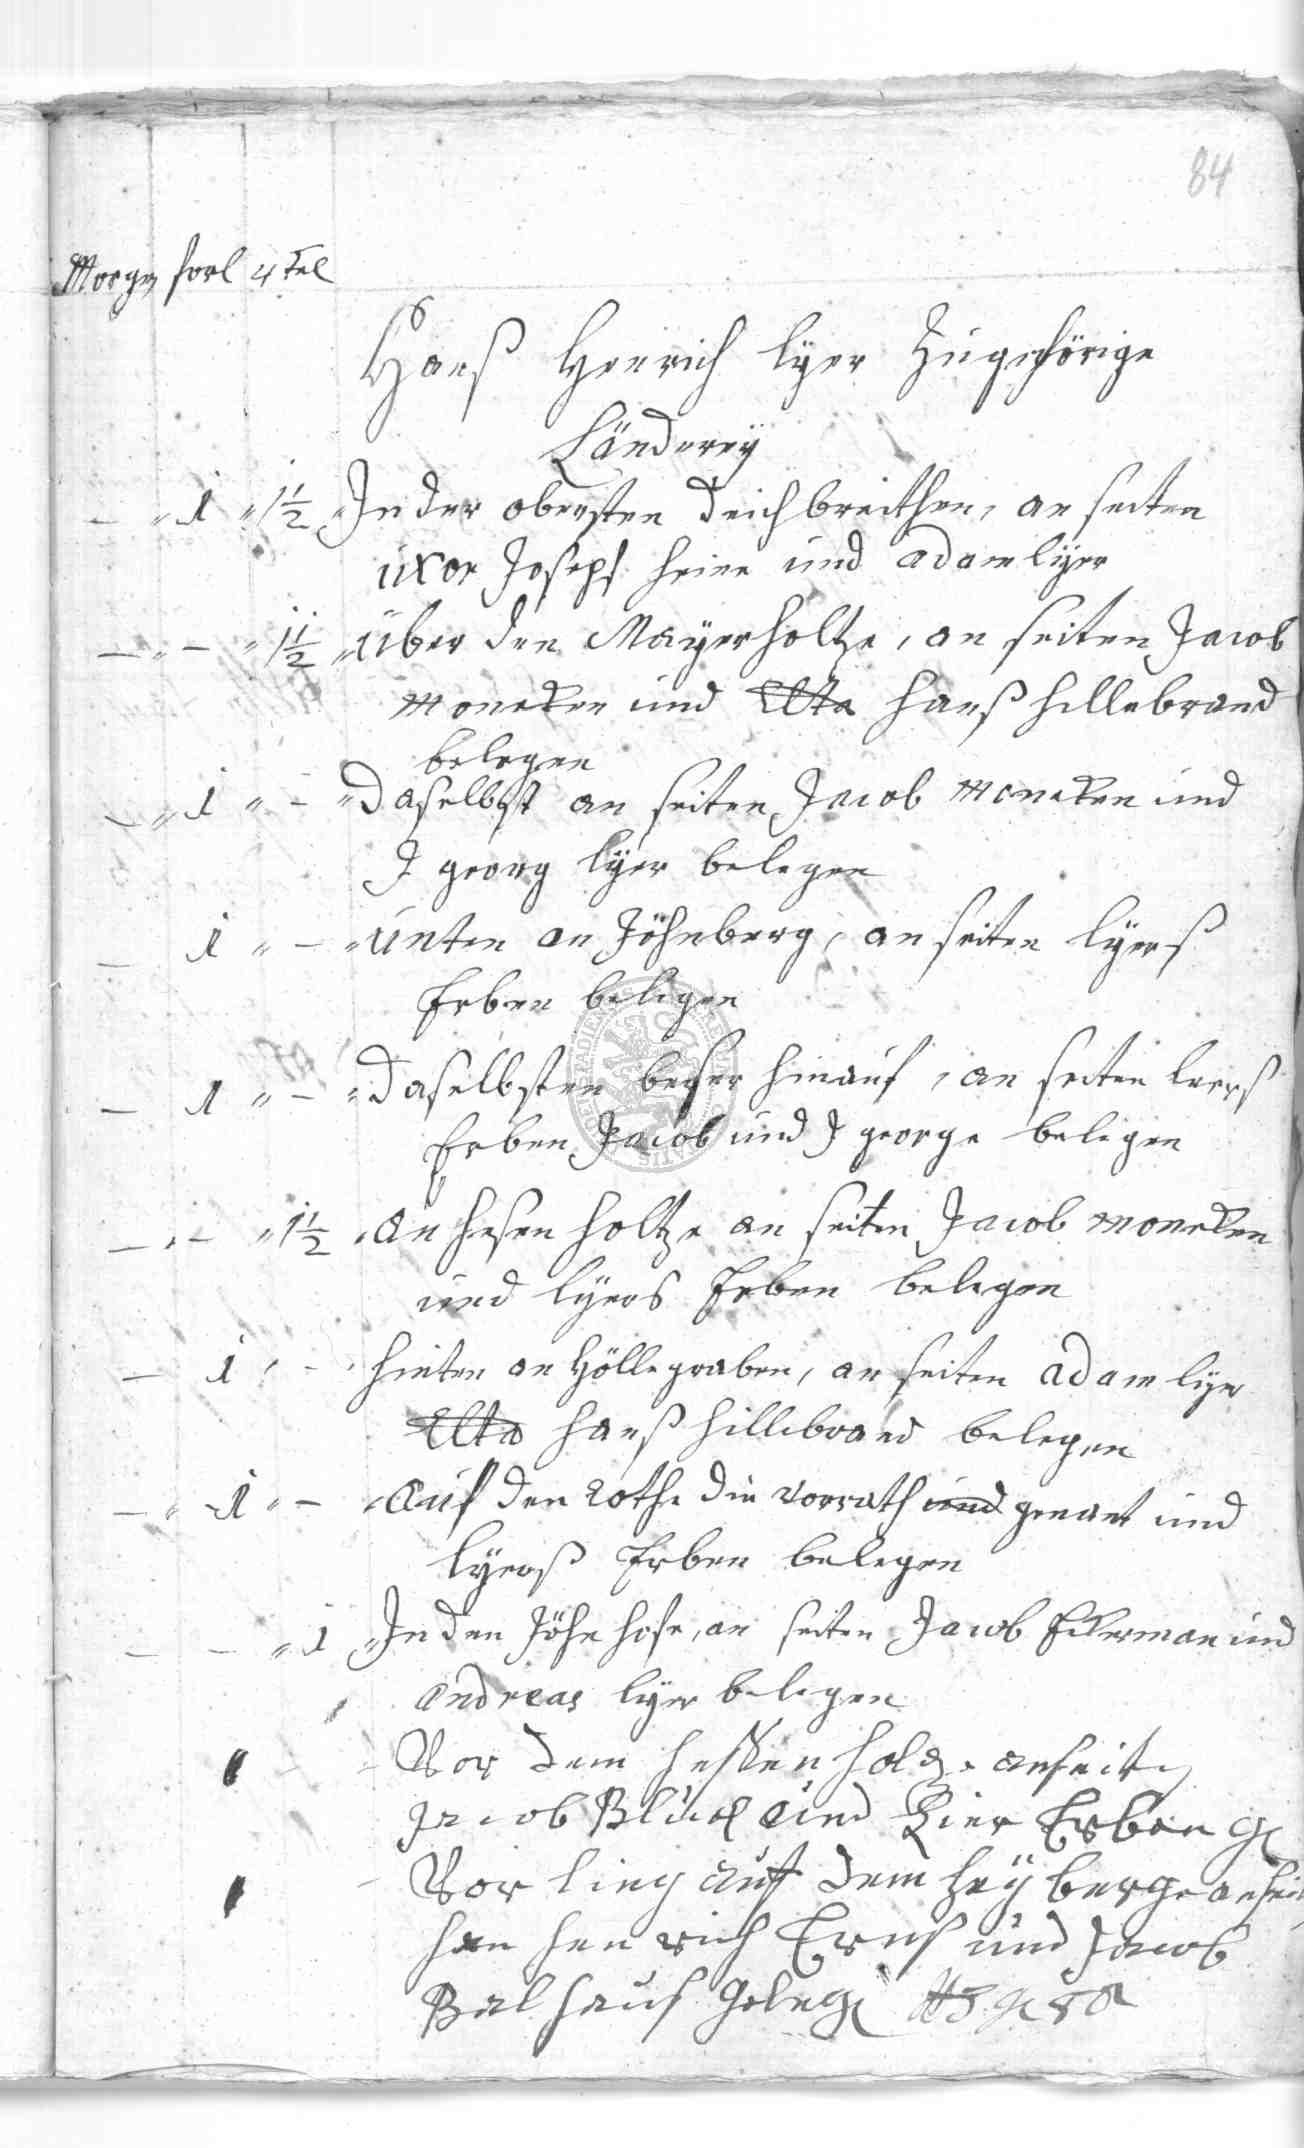 84
Morgen forl 4tel
Hanß Henrich lÿer Zugehörige
Länderey
– „ 1 „ 1½ „ In der obersten Deichbreithen, an seiten
uxor Joseph heine und adam lÿer
– „ – „ 1½ „ über den Maÿerholtze, an seiten Jacob
moneken und hanß hillebrand
belegen
– „ 1 „ – „ Daselbst an seiten Jacob moneken und
J georg lÿer belegen
– 1 „ – „ unten an Föhnberg, an seiten lÿerß
Erben belegen
– 1 „ – „ Daselbsten beßer hinauf, an seiten leerß
Erben Jacob und J george belegen
– „ – „ 1½ „ an hesen holtze an seiten Jacob moneken
und lÿers Erben belegen
– 1 „ – hinten an Höllegraben, an seiten adam lÿer
hanß hillebrand belegen
– „ 1 „ – „ auf den rothe die vorrath und genant und
lÿerß Erben belegen
– – „ 1 „ In den Föhe hofe, an seiten Jacob Ekerman und
andreas lÿer belegen
1 – – Vor dem heßen holtze anseiten
Jacob Blück und Lier Erben
1 – Vor ling auf dem heÿ berge anseit
han henrich Ernst und Jacob
Balhaus geleg